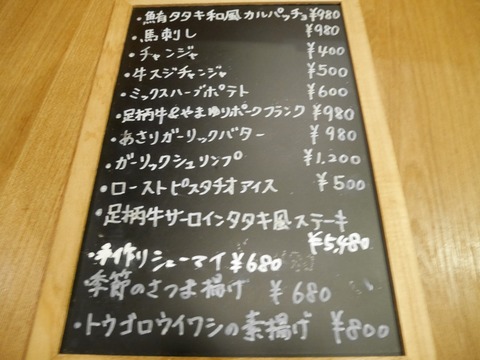 ・鮪タタキ和風カルパッチョ ¥980
・馬刺し ¥980
・チャンジャ ¥400
・牛スジチャンジャ ¥500
・ミックスハーブポテト ¥600
・足柄牛&やまゆりポークフランク ¥980
・あさりガーリックバター ¥980
・ガーリックシュリンプ ¥1.200
・ローストピスタチオアイス ¥500
・足柄牛サーロインタタキ風ステーキ
¥5,480
・手作りシューマイ ¥680
季節のさつま揚げ ¥680
・トウゴロウイワシの素揚げ ¥800